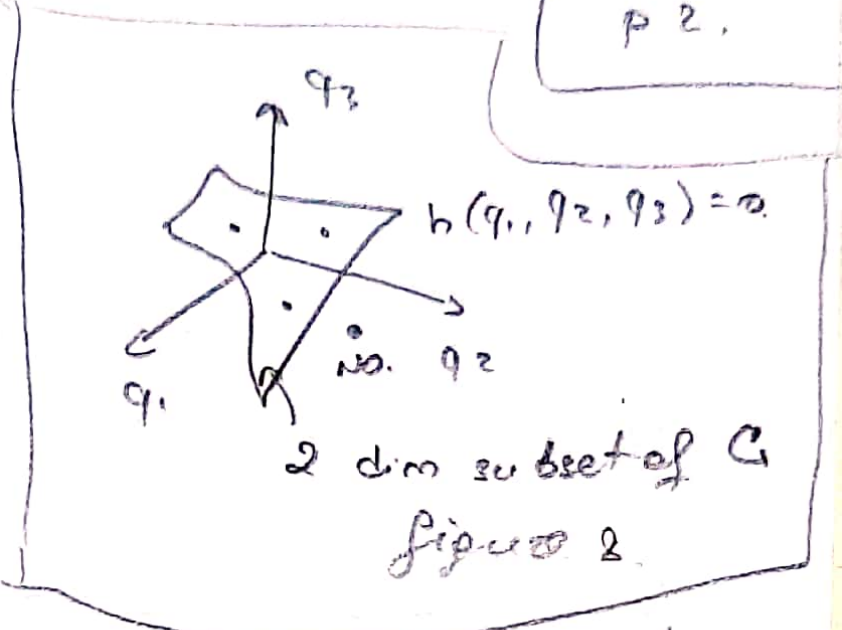 p 2.
q3
h(q1, q2, q3) = 0
NO. q2
q1
2 dim subset of C
figure 8